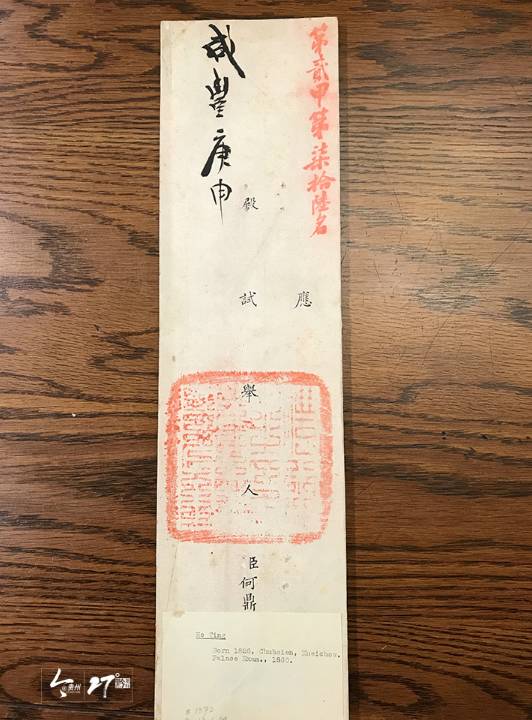 第貳甲第柒拾陸名
應
殿試舉人臣何鼎
咸豐庚申
Ho Ting
Born 1826, Chuhsien, Kweichow.
Palace Exam., 1860.
貴州
27°